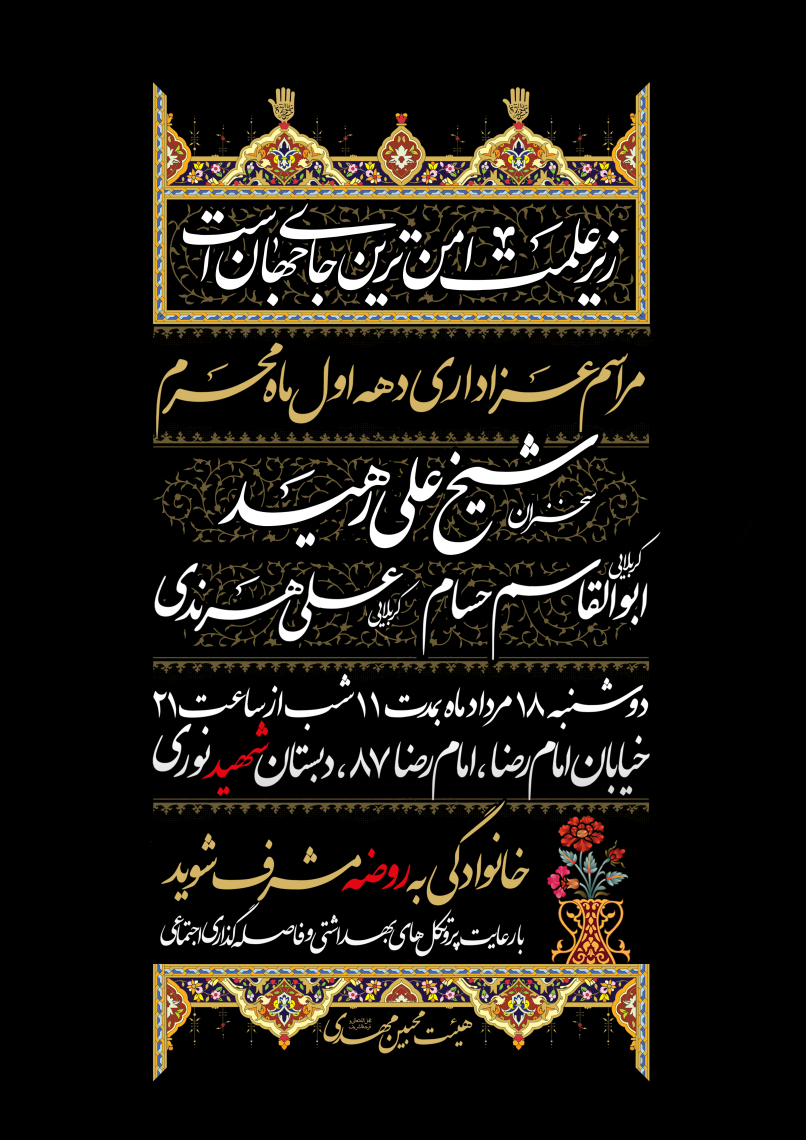 زیر علمت امن ترین جای جهان است
مراسم عزاداری دهه اول ماه محرم
سخنران شیخ علی زهید
کربلایی ابوالقاسم حسام کربلایی علی هرندی
دوشنبه ۱۸ مرداد ماه بمدت ۱۱ شب از ساعت ۲۱
خیابان امام رضا، امام رضا ۸۷، دبستان شهید نوری
خانوادگی به روضه مشرف شوید
با رعایت پروتکل های بهداشتی و فاصله گذاری اجتماعی
هیئت محبین مهدی